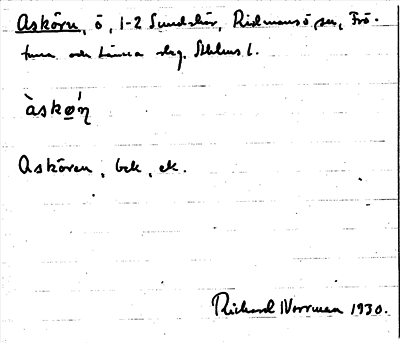 Askörn, ö, 1-2 Sundskär, Rådmansö sn, Frö-
tuna och Länna skg. Sthlms l.
àskø̀ŋ
Askören, bek, ek.
Richard Norrman 1930.